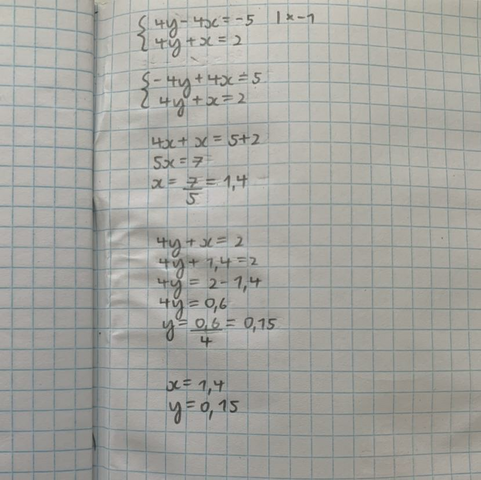 4y - 4x = -5 | x -1
4y + x = 2
-4y + 4x = 5
4y + x = 2
4x + x = 5+2
5x = 7
x = 7/5 = 1,4
4y + x = 2
4y + 1,4 = 2
4y = 2 - 1,4
4y = 0,6
y = 0,6/4 = 0,15
x = 1,4
y = 0,15